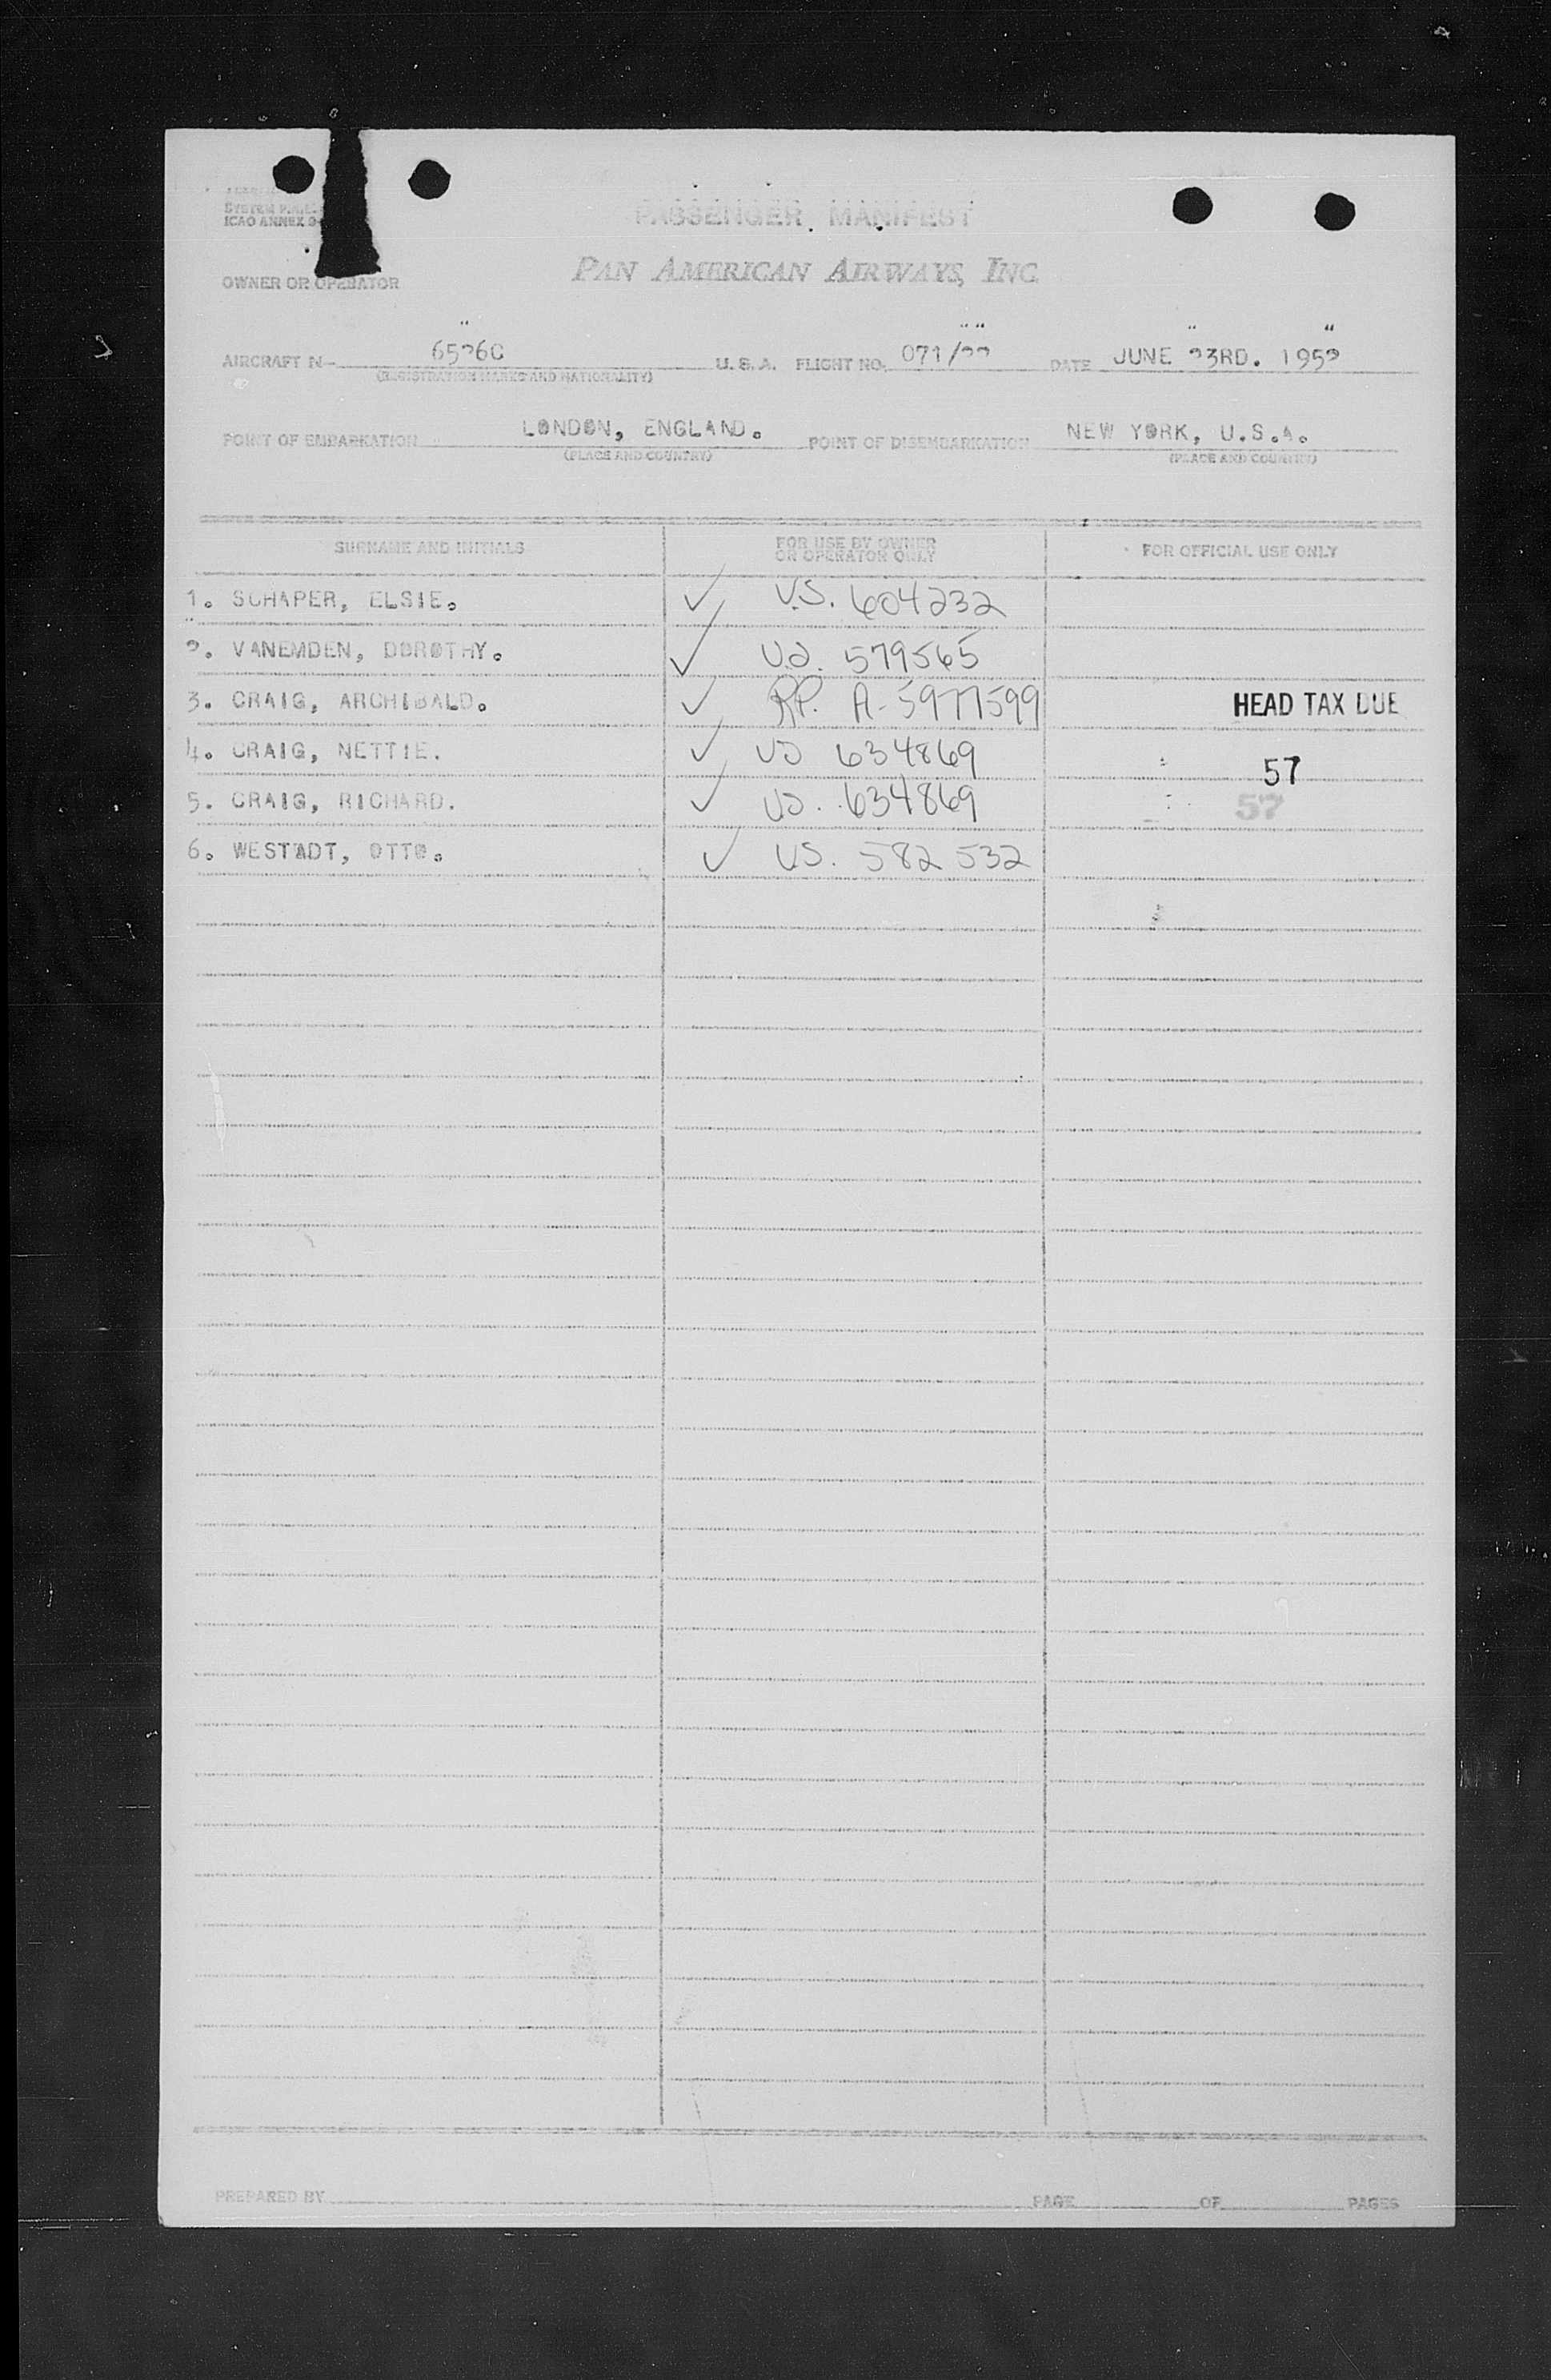 SYSTEM P.A.E.
ICAO ANNEX 9
PASSENGER MANIFEST
OWNER OR OPERATOR
PAN AMERICAN AIRWAYS, INC.
AIRCRAFT N- 65260 U. S. A. FLIGHT NO. 071/22 DATE JUNE 23RD. 1952
(REGISTRATION MARKS AND NATIONALITY)
POINT OF EMBARKATION LONDON, ENGLAND. POINT OF DISEMBARKATION NEW YORK, U.S.A.
(PLACE AND COUNTRY) (PLACE AND COUNTRY)
SURNAME AND INITIALS FOR USE BY OWNER OR OPERATOR ONLY FOR OFFICIAL USE ONLY
1. SCHAPER, ELSIE. ✓ U.S. 604232
2. VANEMDEN, DOROTHY. ✓ U.S. 579565
3. CRAIG, ARCHIBALD. ✓ R.P. A-5977599 HEAD TAX DUE
4. CRAIG, NETTIE. ✓ US 634869 57
5. CRAIG, RICHARD. ✓ US. 634869 57
6. WESTADT, OTTO. ✓ US. 582 532
PREPARED BY PAGE OF PAGES